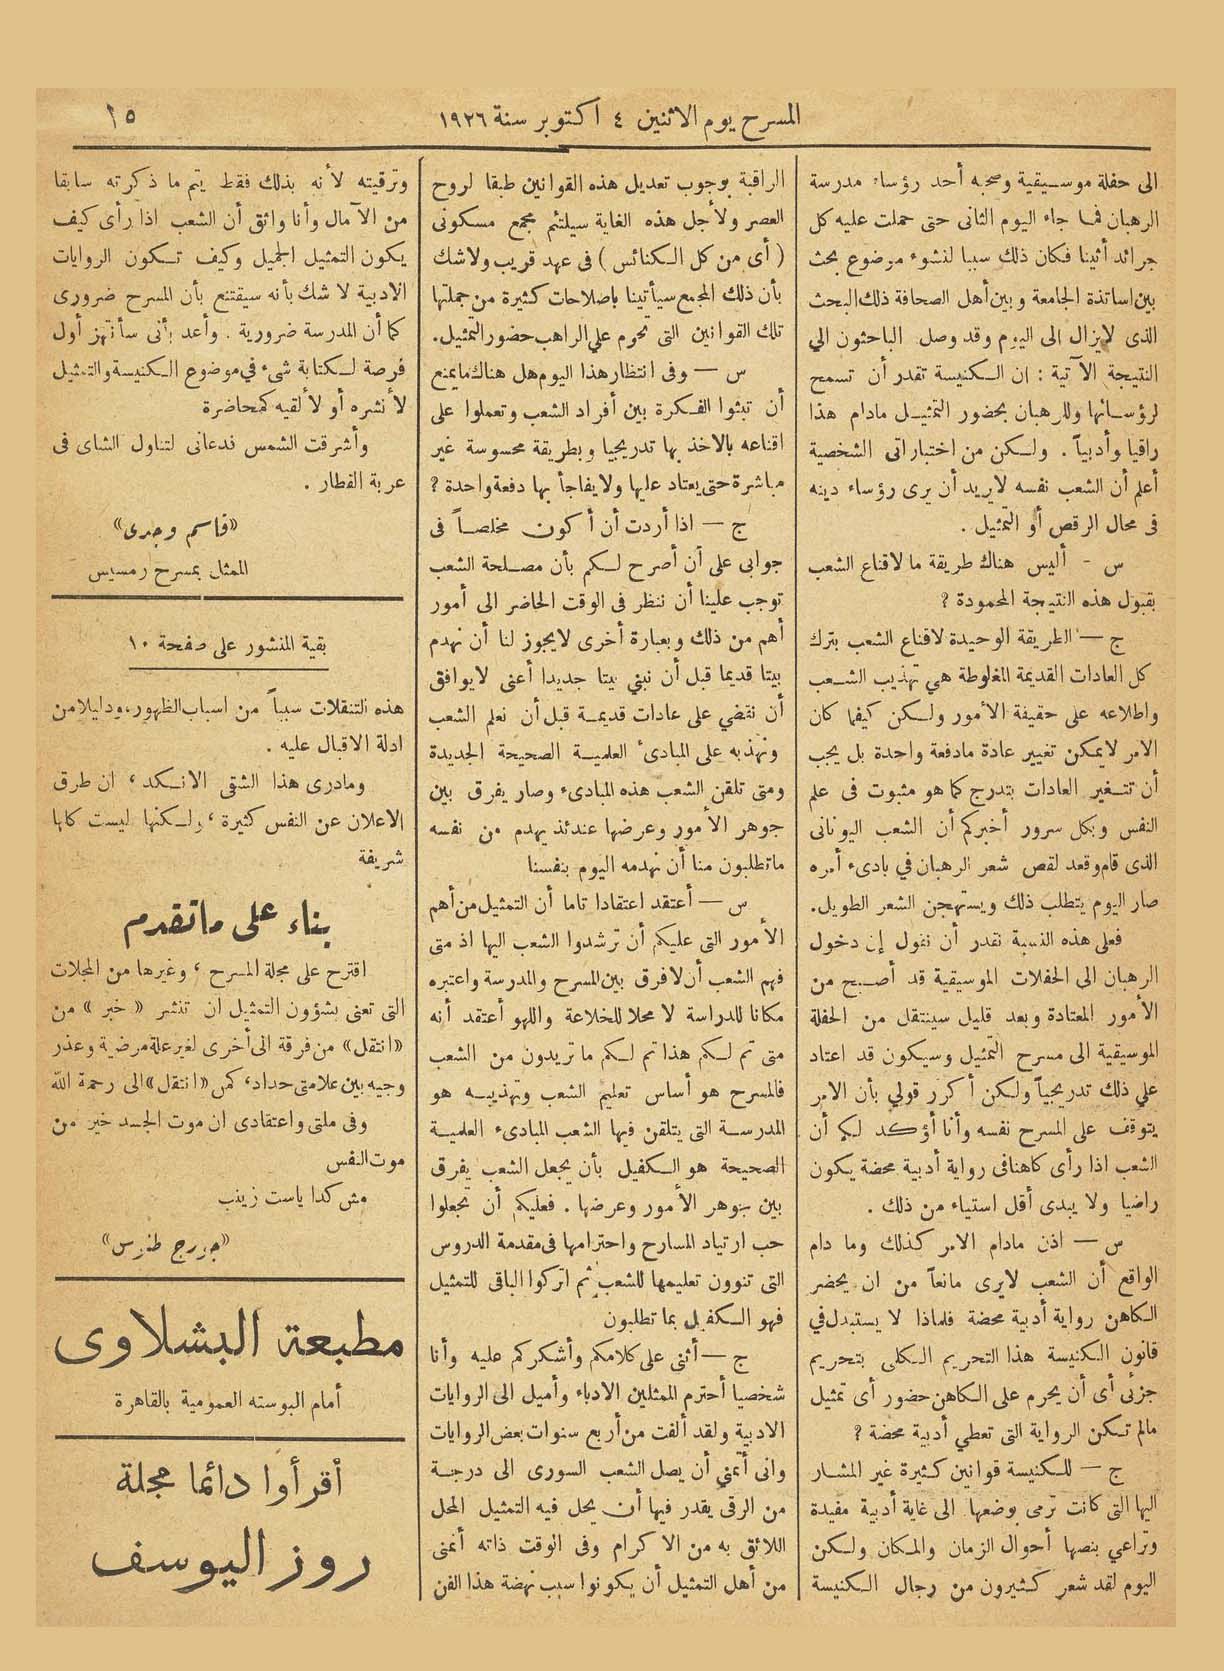 المسرح يوم الاثنين ٤ اكتوبر سنة ١٩٢٦
١٥
الى حفلة موسيقية وصحبه أحد رؤساء مدرسة
الرهبان فما جاء اليوم الثانى حتى حملت عليه كل
جرائد أثينا فكان ذلك سببا لنشوء موضوع بحث
بين اساتذة الجامعة وبين أهل الصحافة ذلك البحث
الذى لايزال الى اليوم وقد وصل الباحثون الي
النتيجة الآتية : ان الكنيسة تقدر أن تسمح
لرؤسائها وللرهبان بحضور التمثيل مادام هذا
راقيا وأدبياً . ولكن من اختباراتى الشخصية
أعلم أن الشعب نفسه لايريد أن يرى رؤساء دينه
فى محال الرقص أو التمثيل .
س - أليس هناك طريقة ما لاقناع الشعب
بقبول هذه النتيجة المحمودة ؟
ج — الطريقة الوحيدة لاقناع الشعب بترك
كل العادات القديمة المغلوطة هي تهذيب الشعب
واطلاعه على حقيقة الأمور ولكن كيفما كان
الامر لايمكن تغيير عادة مادفعة واحدة بل يجب
أن تتغير العادات بتدرج كما هو مثبوت فى علم
النفس وبكل سرور أخبركم أن الشعب اليونانى
الذى قام وقعد لقص شعر الرهبان في بادىء أمره
صار اليوم يتطلب ذلك ويستهجن الشعر الطويل.
فعلى هذه النسبة نقدر أن نقول إن دخول
الرهبان الى الحفلات الموسيقية قد أصبح من
الأمور المعتادة وبعد قليل سينتقل من الحفلة
الموسيقية الى مسرح التمثيل وسيكون قد اعتاد
علي ذلك تدريجياً ولكن أكرر قولي بأن الامر
يتوقف على المسرح نفسه وأنا أؤكد لكم أن
الشعب اذا رأى كاهنا فى رواية أدبية محضة يكون
راضيا ولا يبدى أقل استياء من ذلك .
س — اذن مادام الامر كذلك وما دام
الواقع أن الشعب لايرى مانعاً من ان يحضر
الكاهن رواية أدبية محضة فلماذا لا يستبدل في
قانون الكنيسة هذا التحريم الكلى بتحريم
جزئى أى أن يحرم على الكاهن حضور أى تمثيل
مالم تكن الرواية التى تعطي أدبية محضة ؟
ج — للكنيسة قوانين كثيرة غير المشار
اليها التى كانت ترمى بوضعها الى غاية أدبية مفيدة
وتراعي بنصها أحوال الزمان والمكان ولكن
اليوم لقد شعر كثيرون من رجال الكنيسة
الراقية بوجوب تعديل هذه القوانين طبقا لروح
العصر ولأجل هذه الغاية سيلتئم مجمع مسكونى
( أى من كل الكنائس ) فى عهد قريب ولاشك
بأن ذلك المجمع سيأتينا باصلاحات كثيرة من جملتها
تلك القوانين التى تحرم علي الراهب حضور التمثيل.
س — وفى انتظار هذا اليوم هل هناك مايمنع
أن تبثوا الفكرة بين أفراد الشعب وتعملوا على
اقناعه بالاخذ بها تدريجيا وبطريقة محسوسة غير
مباشرة حتى يعتاد عليها ولا يفاجأ بها دفعة واحدة ؟
ج — اذا أردت أن أكون مخلصاً فى
جوابى على أن أصرح لكم بأن مصلحة الشعب
توجب علينا أن ننظر فى الوقت الحاضر الى أمور
أهم من ذلك وبعبارة أخرى لايجوز لنا أن نهدم
بيتا قديما قبل أن نبني بيتا جديدا أعنى لايوافق
أن نقضي على عادات قديمة قبل أن نعلم الشعب
ونهذبه على المبادىء العلمية الصحيحة الجديدة
ومتى تلقن الشعب هذه المبادىء وصار يفرق بين
جوهر الأمور وعرضها عندئذ يهدم من نفسه
ماتطلبون منا أن نهدمه اليوم بنفسنا
س — أعتقد اعتقادا تاما أن التمثيل من أهم
الأمور التى عليكم أن ترشدوا الشعب اليها اذ متى
فهم الشعب أن لافرق بين المسرح والمدرسة واعتبره
مكانا للدراسة لا محلا للخلاعة واللهو أعتقد أنه
متى تم لكم هذا تم لكم ما تريدون من الشعب
فالمسرح هو أساس تعليم الشعب وتهذيبه هو
المدرسة التى يتلقن فيها الشعب المبادىء العلمية
الصحيحة هو الكفيل بأن يجعل الشعب يفرق
بين جوهر الأمور وعرضها . فعليكم أن تجعلوا
حب ارتياد المسارح واحترامها فى مقدمة الدروس
التى تنوون تعليمها للشعب ثم اتركوا الباقى للتمثيل
فهو الكفيل بما تطلبون
ج — أثنى على كلامكم وأشكركم عليه وأنا
شخصيا أحترم الممثلين الادباء وأميل الى الروايات
الادبية ولقد ألفت من أربع سنوات بعض الروايات
وانى أتمني أن يصل الشعب السورى الى درجة
من الرقى يقدر فيها أن يحل فيه التمثيل المحل
اللائق به من الاكرام وفى الوقت ذاته أتمنى
من أهل التمثيل أن يكونوا سبب نهضة هذا الفن
وترقيته لأنه بذلك فقط يتم ما ذكرته سابقا
من الآمال وأنا واثق أن الشعب اذا رأى كيف
يكون التمثيل الجميل وكيف تكون الروايات
الادبية لا شك بأنه سيقتنع بأن المسرح ضرورى
كما أن المدرسة ضرورية . وأعد بأنى سأنتهز أول
فرصة لكتابة شىء في موضوع الكنيسة والتمثيل
لأنشره أو لألقيه كمحاضرة
وأشرقت الشمس فدعانى لتناول الشاى فى
عربة القطار .
«قاسم وجدى»
الممثل بمسرح رمسيس
بقية المنشور على صفحة ١٠
هذه التنقلات سبباً من اسباب الظهور، ودليلا من
ادلة الاقبال عليه .
ومادرى هذا الشقى الانكد، ان طرق
الاعلان عن النفس كثيرة، ولكنها ليست كلها
شريفة
بناء على ماتقدم
اقترح على مجلة المسرح، وغيرها من المجلات
التى تعنى بشؤون التمثيل ان تنشر « خبر » من
«انتقل» من فرقة الى أخرى لغير علة مرضية وعذر
وجيه بين علامتى حداد، كمن «انتقل» الى رحمة الله
وفى ملتى واعتقادى ان موت الجسد خير من
موت النفس
مش كدا ياست زينب
«جورج طنوس»
مطبعة البشلاوى
أمام البوسته العمومية بالقاهرة
أقرأوا دائما مجلة
روز اليوسف